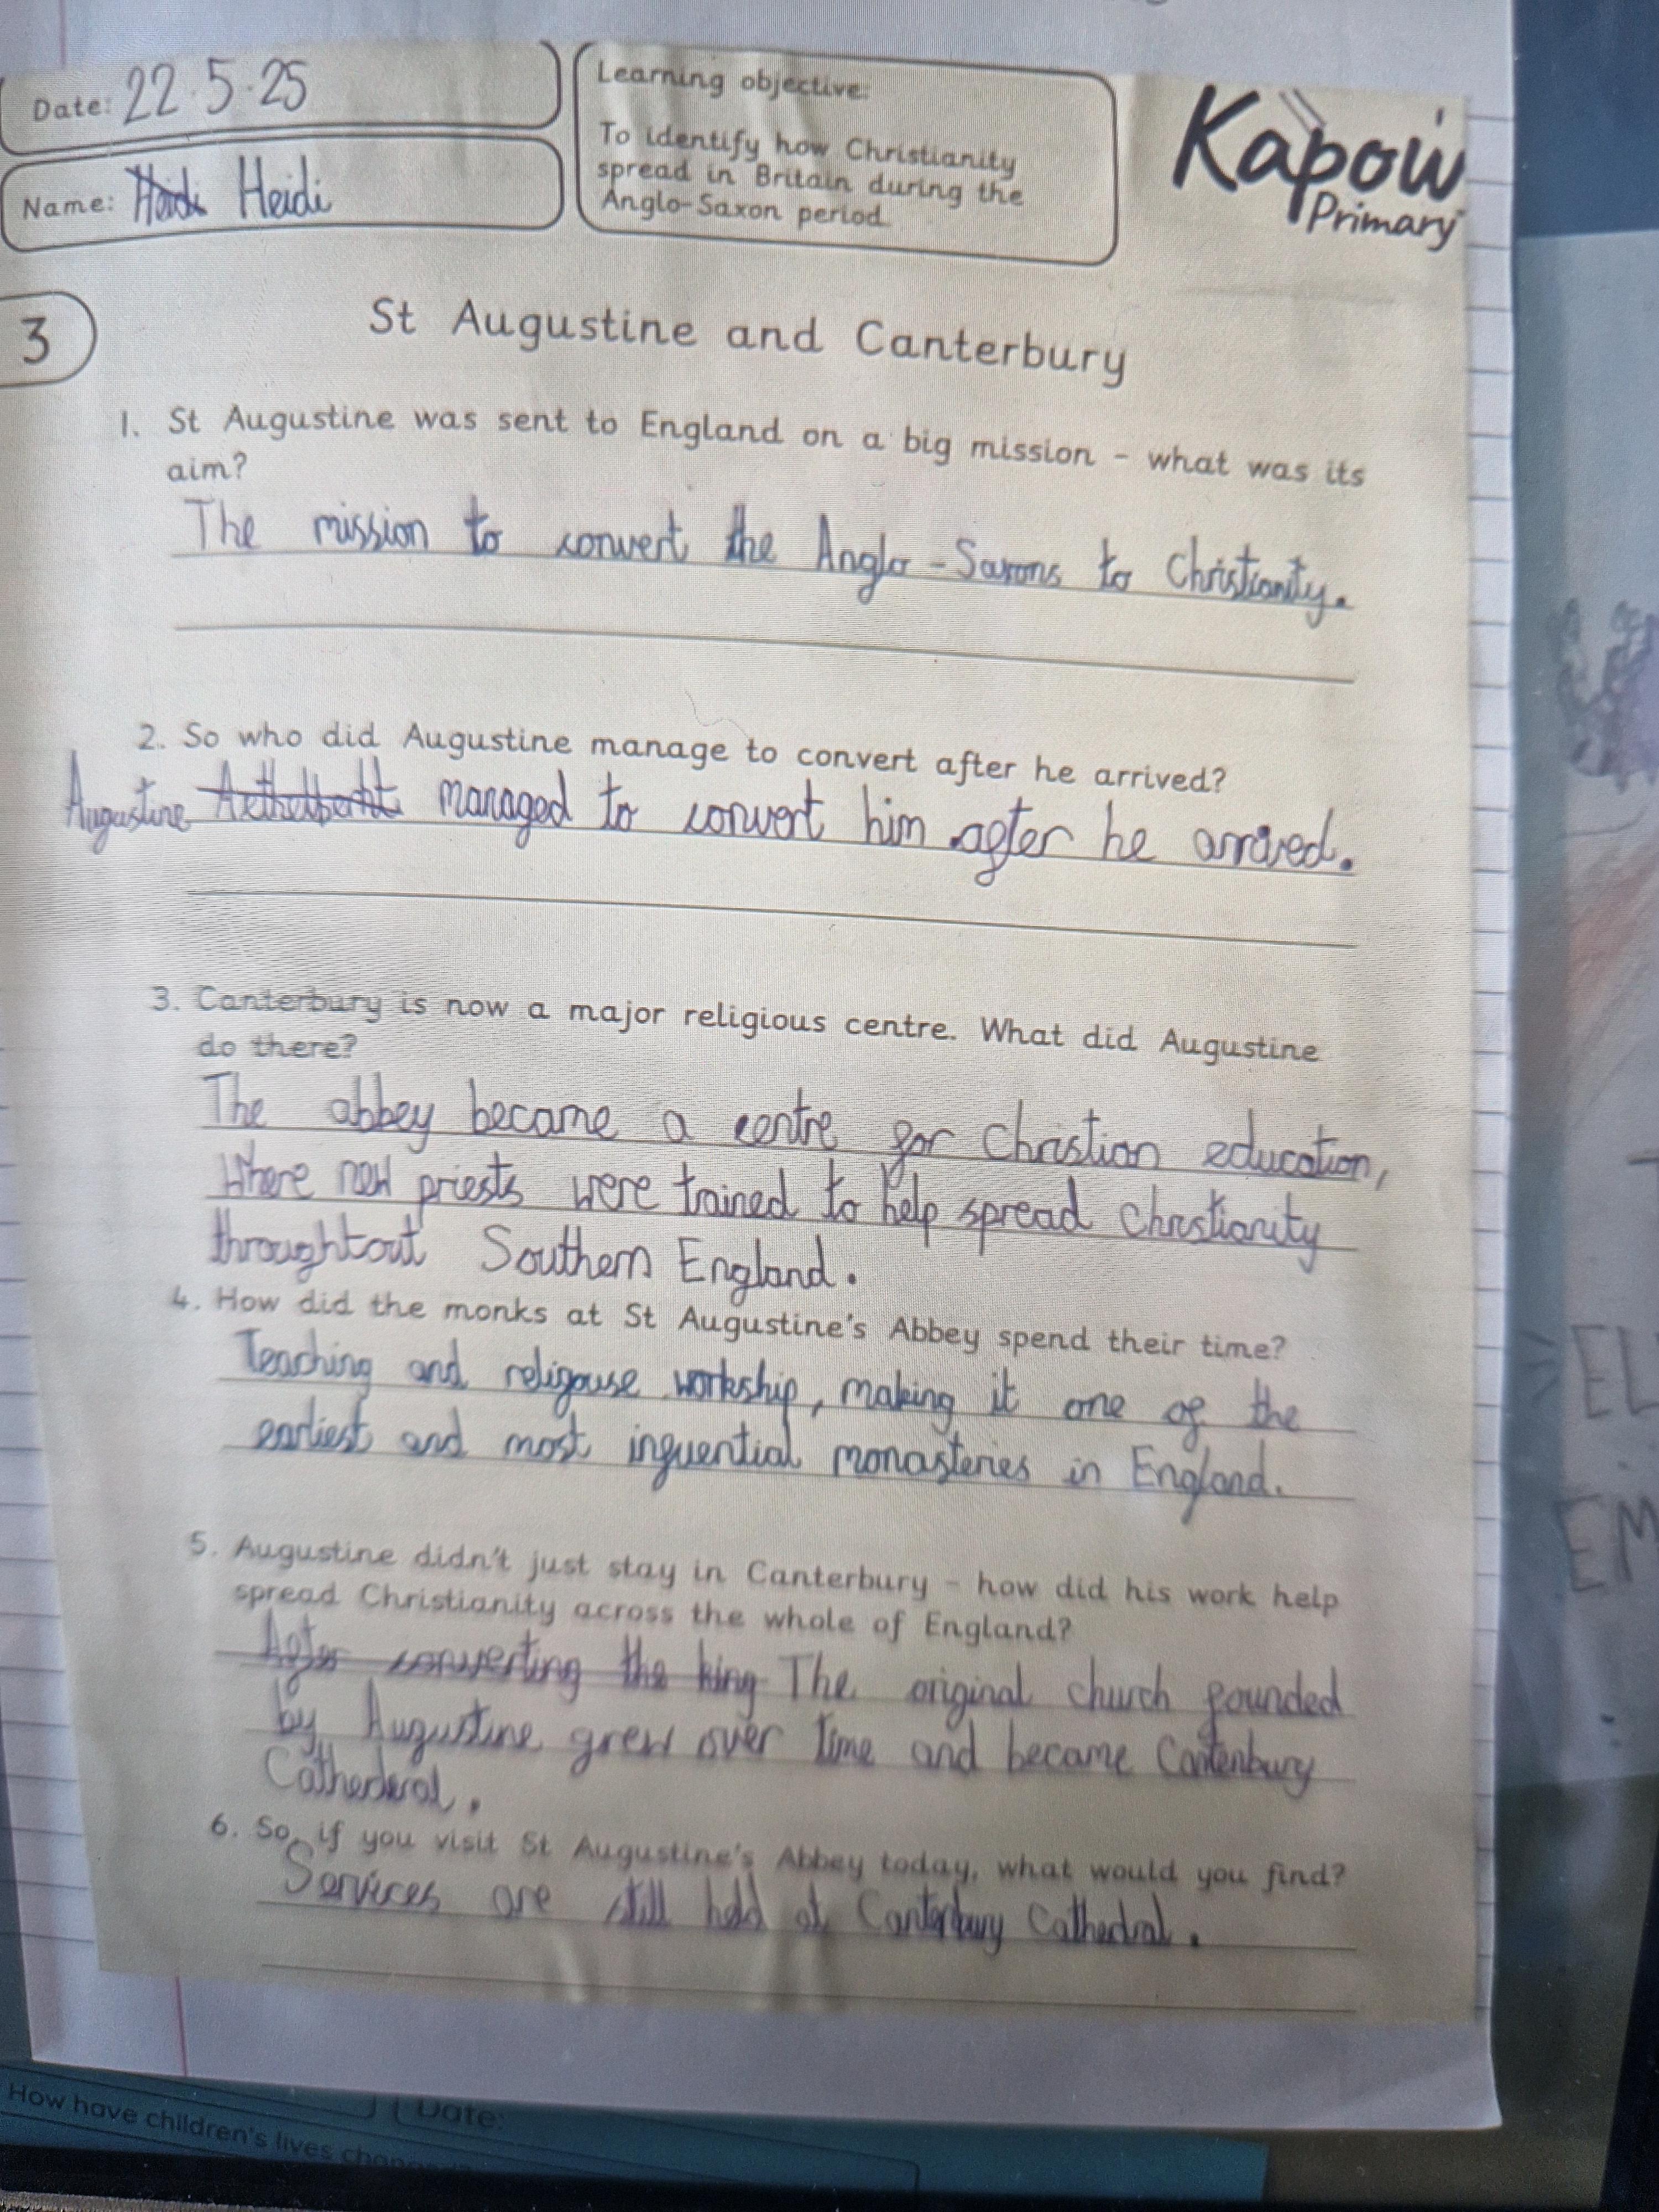 Date: 22.5.25
Name: Heidi Heidi
Learning objective:
To identify how Christianity
spread in Britain during the
Anglo-Saxon period.
Kapow
Primary
3
St Augustine and Canterbury
1. St Augustine was sent to England on a big mission - what was its
aim?
The mission to convert the Anglo-Saxons to Christianity.
2. So who did Augustine manage to convert after he arrived?
Augustine managed to convert him after he arrived.
3. Canterbury is now a major religious centre. What did Augustine
do there?
The abbey became a centre for Christian education,
Where new priests were trained to help spread Christianity
throughtout Southern England.
4. How did the monks at St Augustine's Abbey spend their time?
Teaching and religouse workship, making it one of the
earliest and most infuential monasteries in England.
5. Augustine didn't just stay in Canterbury - how did his work help
spread Christianity across the whole of England?
After converting the king The original church founded
by Augustine grew over time and became Cantenbury
Cathederal.
6. So, if you visit St Augustine's Abbey today, what would you find?
Services are still held at Canterbury Cathedral.
EL
EM
How have children's lives
Date: